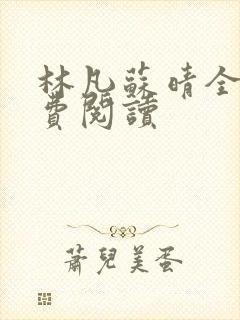 林凡蘇晴全
費閱讀
蕭兒美蛋